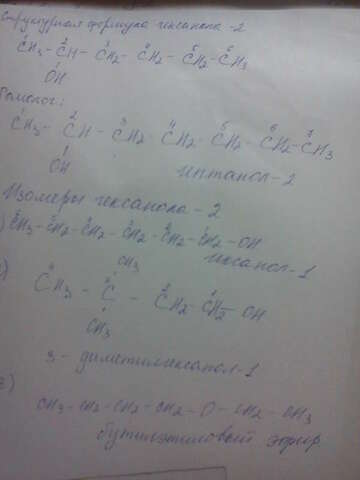 Структурная формула гексанола-2
1 2 3 4 5 6
CH3 - CH - CH2 - CH2 - CH2 - CH3
OH
Гомолог:
1 2 3 4 5 6 7
CH3 - CH - CH2 - CH2 - CH2 - CH2 - CH3
OH
гептанол-2
Изомеры гексанола-2
) CH3 - CH2 - CH2 - CH2 - CH2 - CH2 - OH
гексанол-1
CH3
) CH3 - C - CH2 - CH2 - OH
CH3
3-диметилгексанол-1
3)
CH3 - CH2 - CH2 - CH2 - O - CH2 - CH3
бутилэтиловый эфир